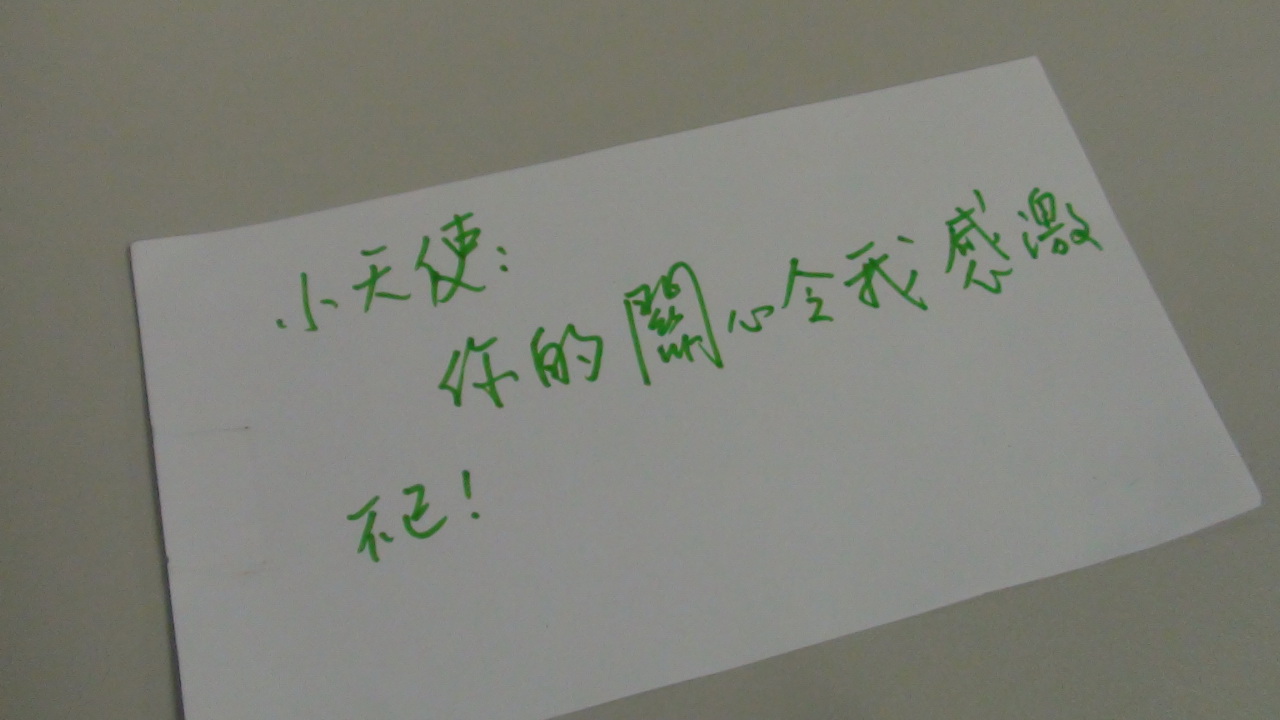 小天使:
你的關心令我感激
不已!